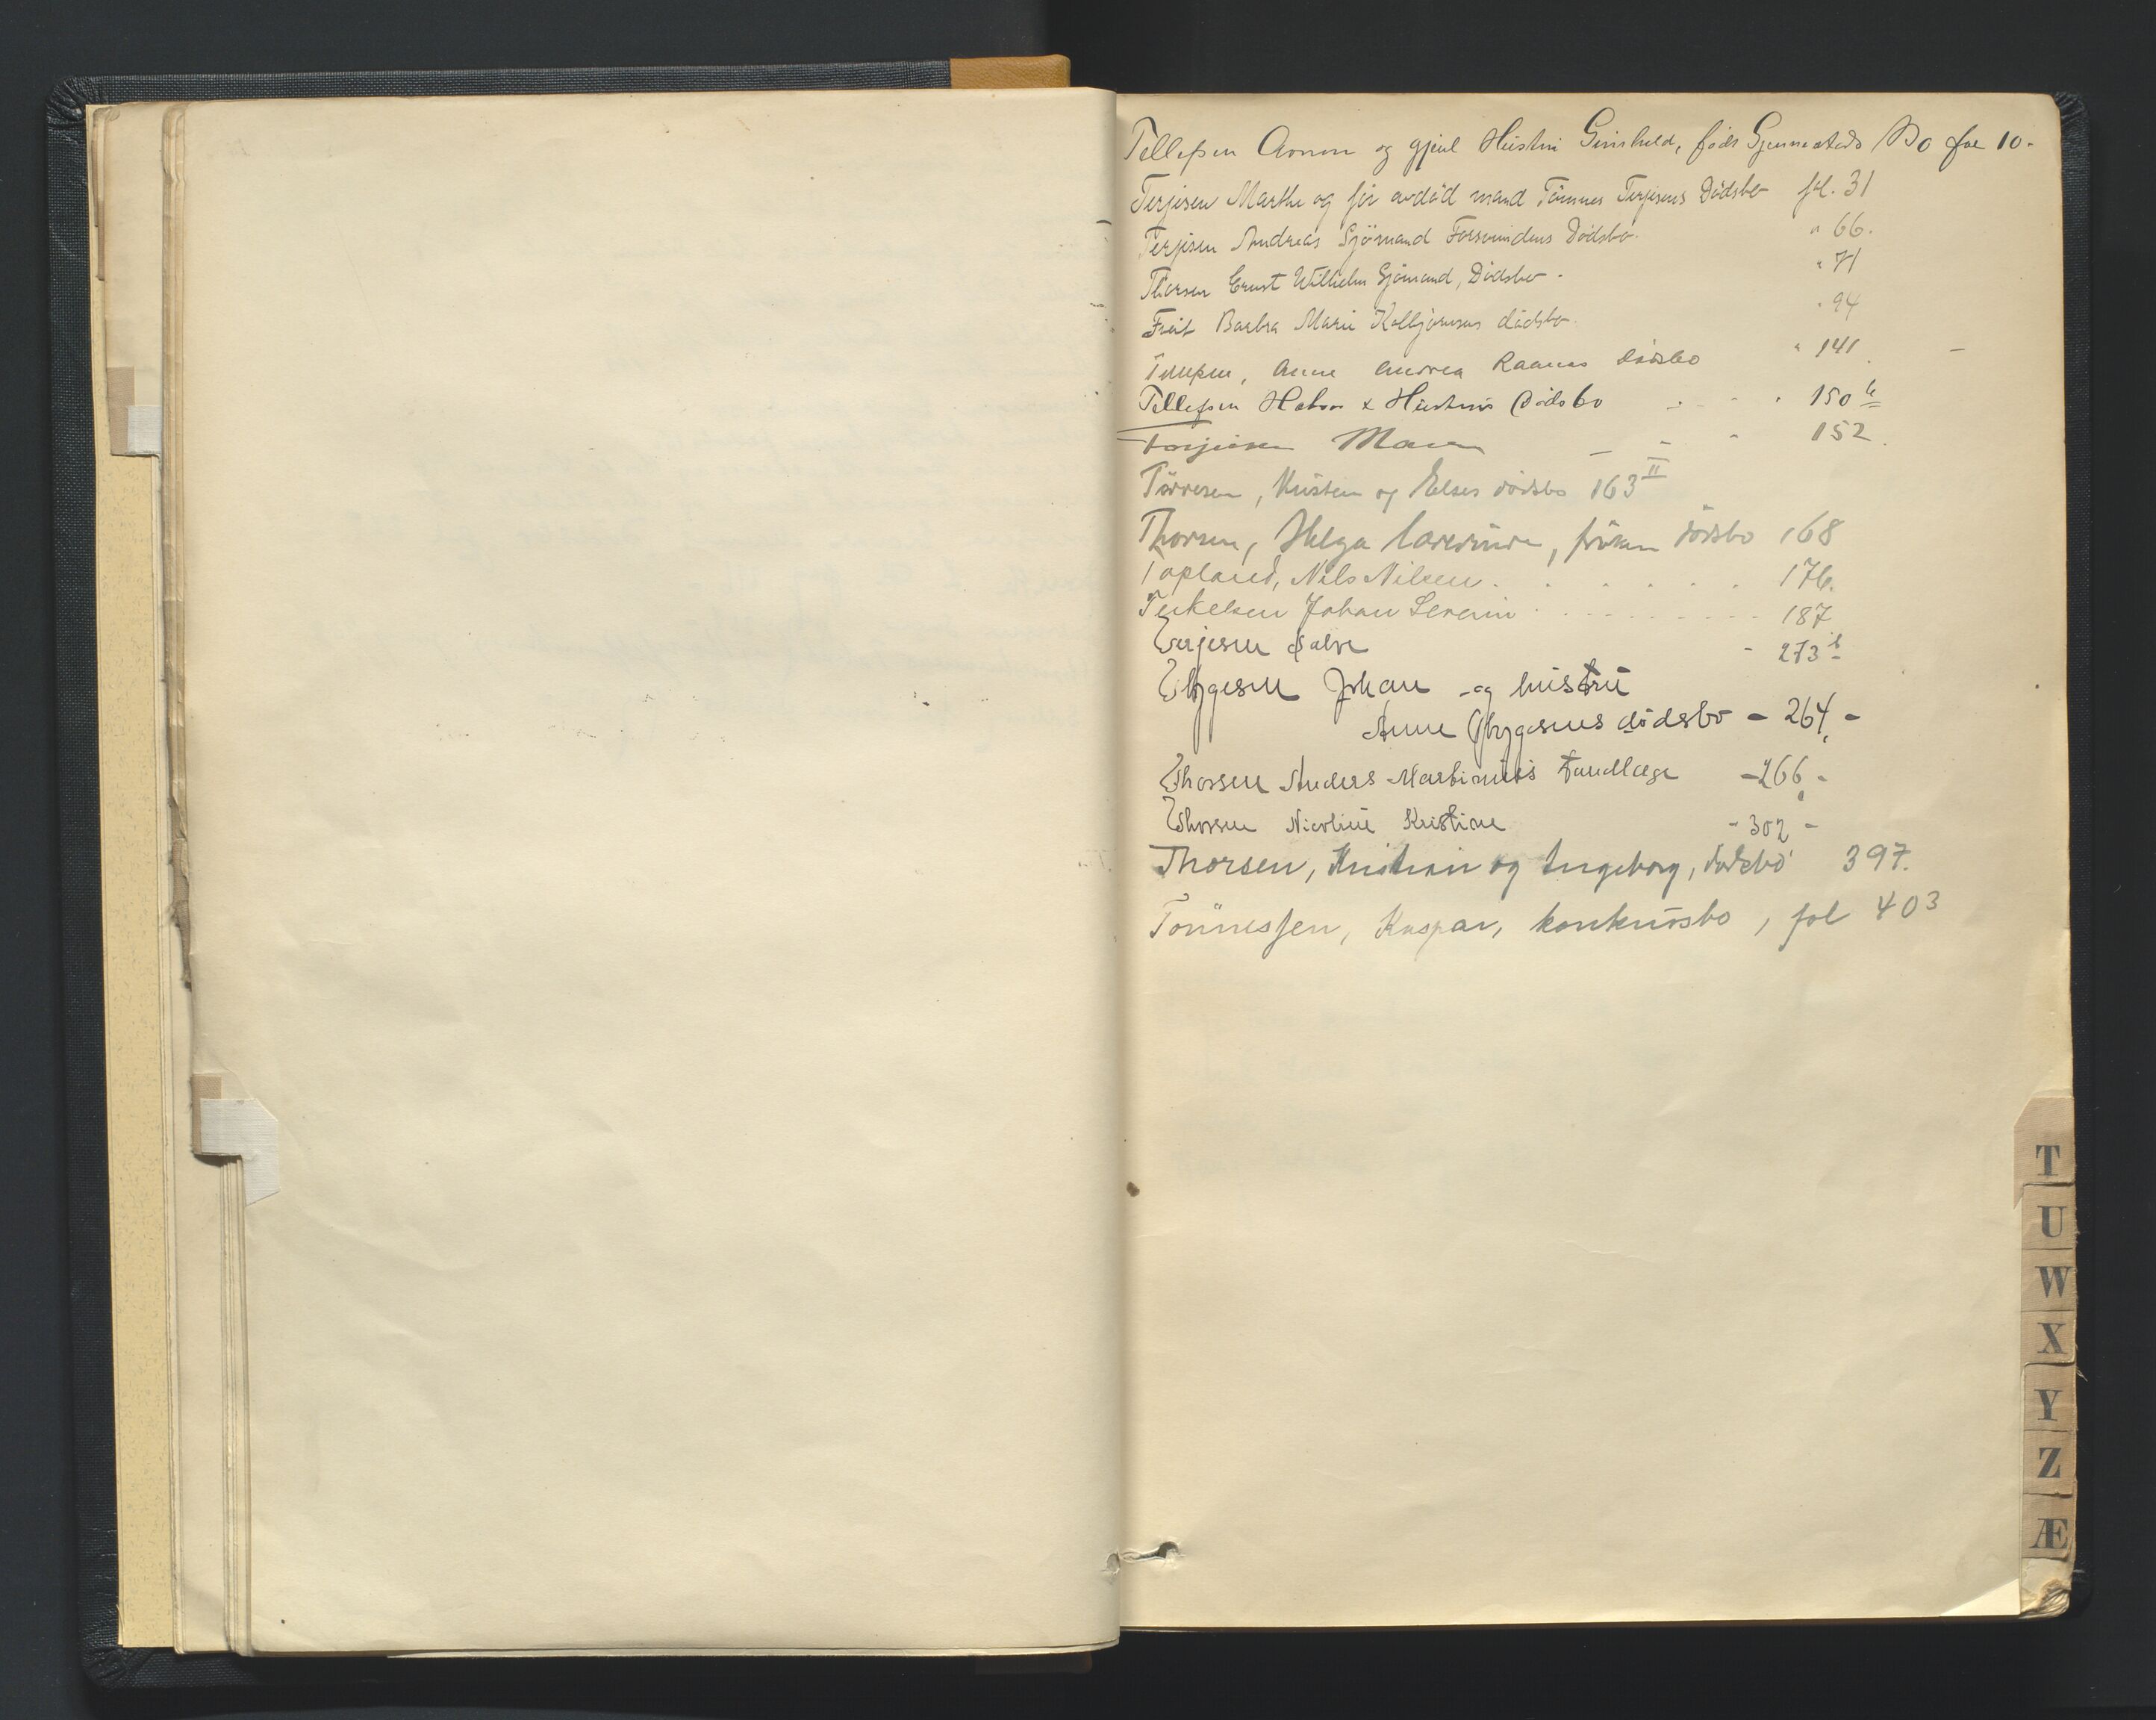 Tellefsen Aanon og gjenl Hustru Gunhild, født Gjennestads Bo fol 10.
Terjesen Marthe og før avdød mand Tönnes Terjesens Dödsbo fol. 31
Terjesen Andreas Sjömand Forsvundens Dödsbo. " 66.
Thorsen Ernst Wilhelm Sjömand, Dödsbo. " 71
Barbra Marie Kolbjörnsens dödsbo. " 94
Anne Andrea Raanes Dödsbo " 141
Tellefsen Hustrus Dödsbo 150 b
Terjesen Maren 152.
Törresen, Kristen og Elses dödsbo 163 II
Thorsen, Helga, fröken dödsbo 168
Topland, Nils Nilsen. 176.
Terkelsen Johan Severin 187
Terjesen Salve - 273 b
Thygesen Johan og hustru
Anne Thygesens dödsbo - 264 -
Thorsen Anders Martinius tandlæge - 266 -
Thorsen Nicoline Kristine - 302 -
Thorsen, Kristian og Ingeborg, dödsbo 397.
Tönnessen, Kaspar, konkursbo, fol 403
T
U
W
X
Y
Z
Æ